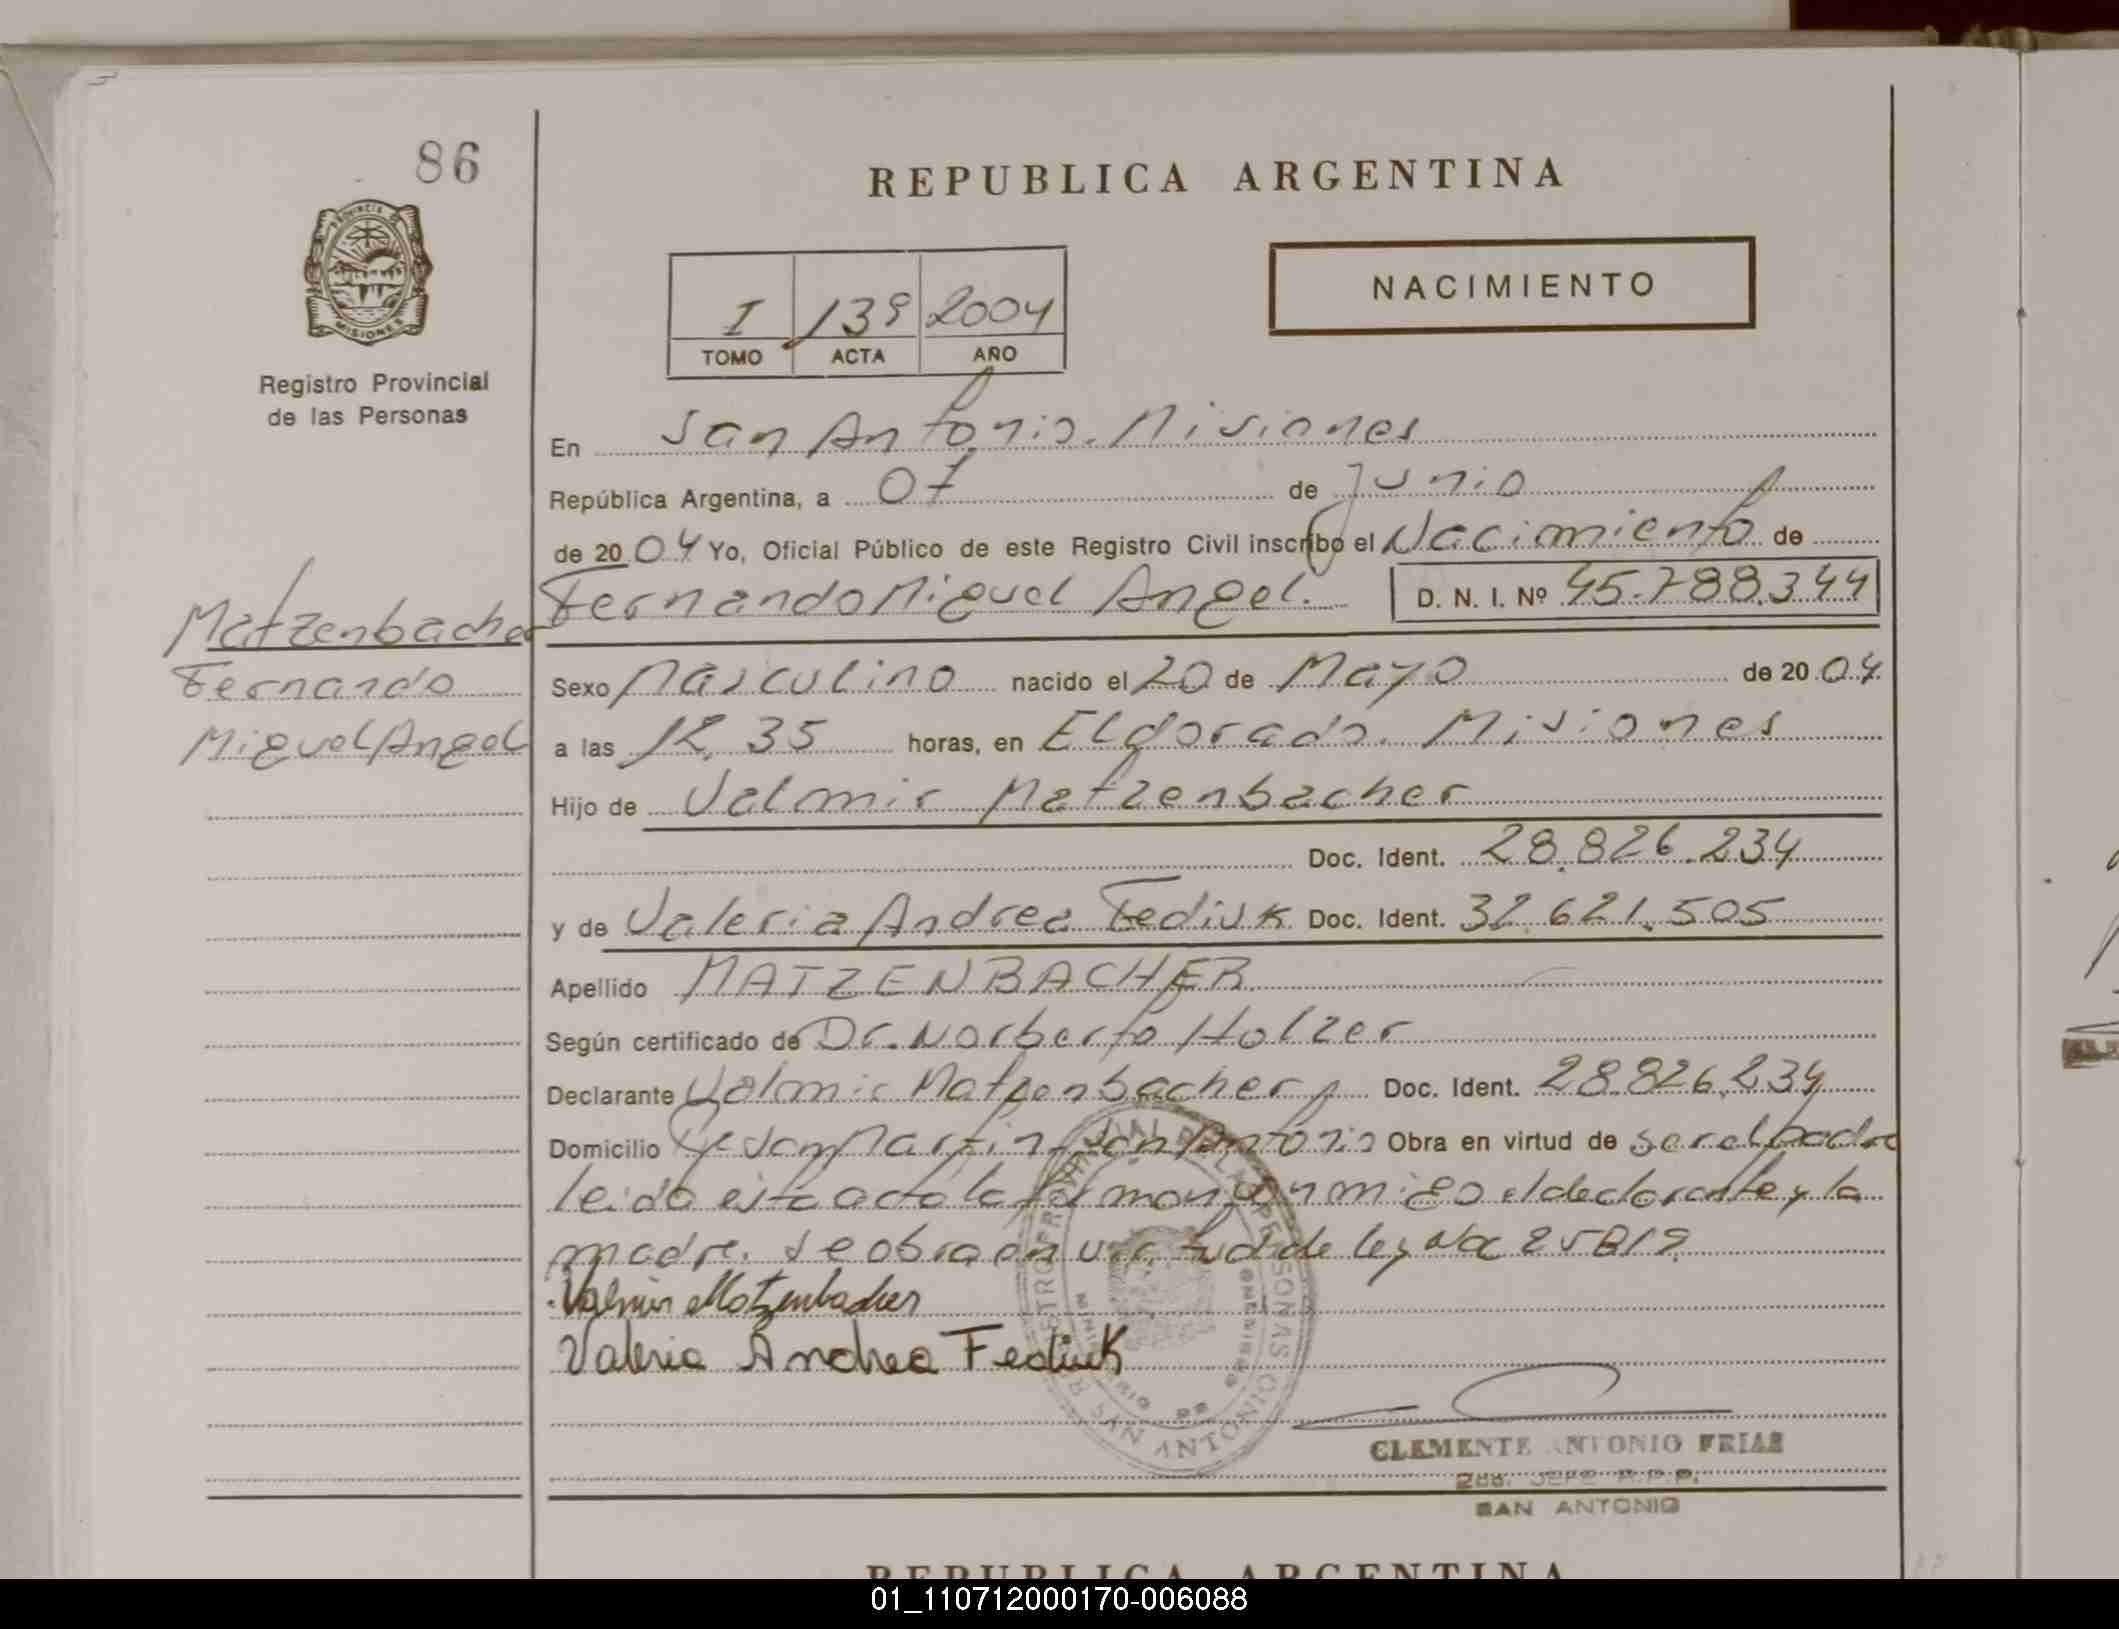 86
REPUBLICA ARGENTINA
PROVINCIA DE
MISIONES
I 139 2004
TOMO ACTA AÑO
NACIMIENTO
Registro Provincial
de las Personas
En San Antonio. Misiones
República Argentina, a 07 de Junio
de 2004 Yo, Oficial Público de este Registro Civil inscribo el Nacimiento de
Fernando Miguel Angel. D. N. I. Nº 45.788.344
Matzenbacher
Fernando
Miguel Angel
Sexo Masculino nacido el 20 de Mayo de 2004
a las 12.35 horas, en Eldorado. Misiones
Hijo de Valmir Matzenbacher
Doc. Ident. 28.826.234
y de Valeria Andrea Fediuk Doc. Ident. 32.621.505
Apellido MATZENBACHER
Según certificado de Dr. Norberto Holzer
Declarante Valmir Matzenbacher Doc. Ident. 28.826.234
Domicilio San Martin San Antonio Obra en virtud de ser el padre
leido esta acta la firman conmigo el declarante y la
madre. Se obra en virtud de ley No 25819
Valmir Matzenbacher
Valeria Andrea Fediuk
REGISTRO PROVINCIAL DE LAS PERSONAS
SAN ANTONIO
MINISTERIO DE GOBIERNO
CLEMENTE ANTONIO FRIAS
2do. JEFE R.P.P.
SAN ANTONIO
REPUBLICA ARGENTINA
01_110712000170-006088